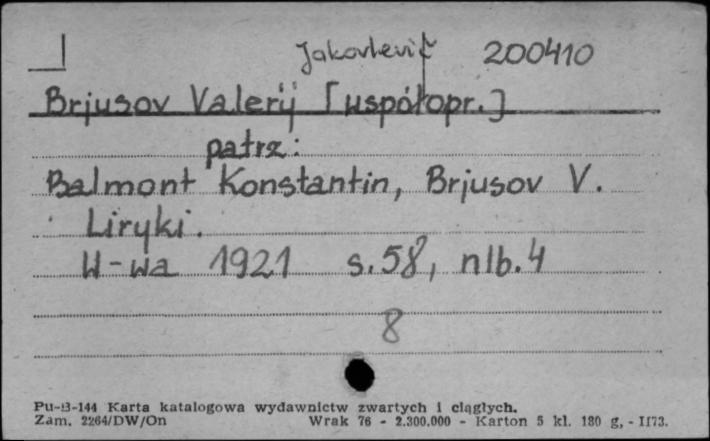 Jakovlevič 200410
Brjusov Valerij [współopr.]
patrz:
Balmont Konstantin, Brjusov V.
Liryki.
W-wa 1921 s.58, nlb.4
8
Pu-B-144 Karta katalogowa wydawnictw zwartych i ciągłych.
Zam. 2264/DW/On Wrak 76 - 2.300.000 - Karton 5 kl. 180 g, - II73.